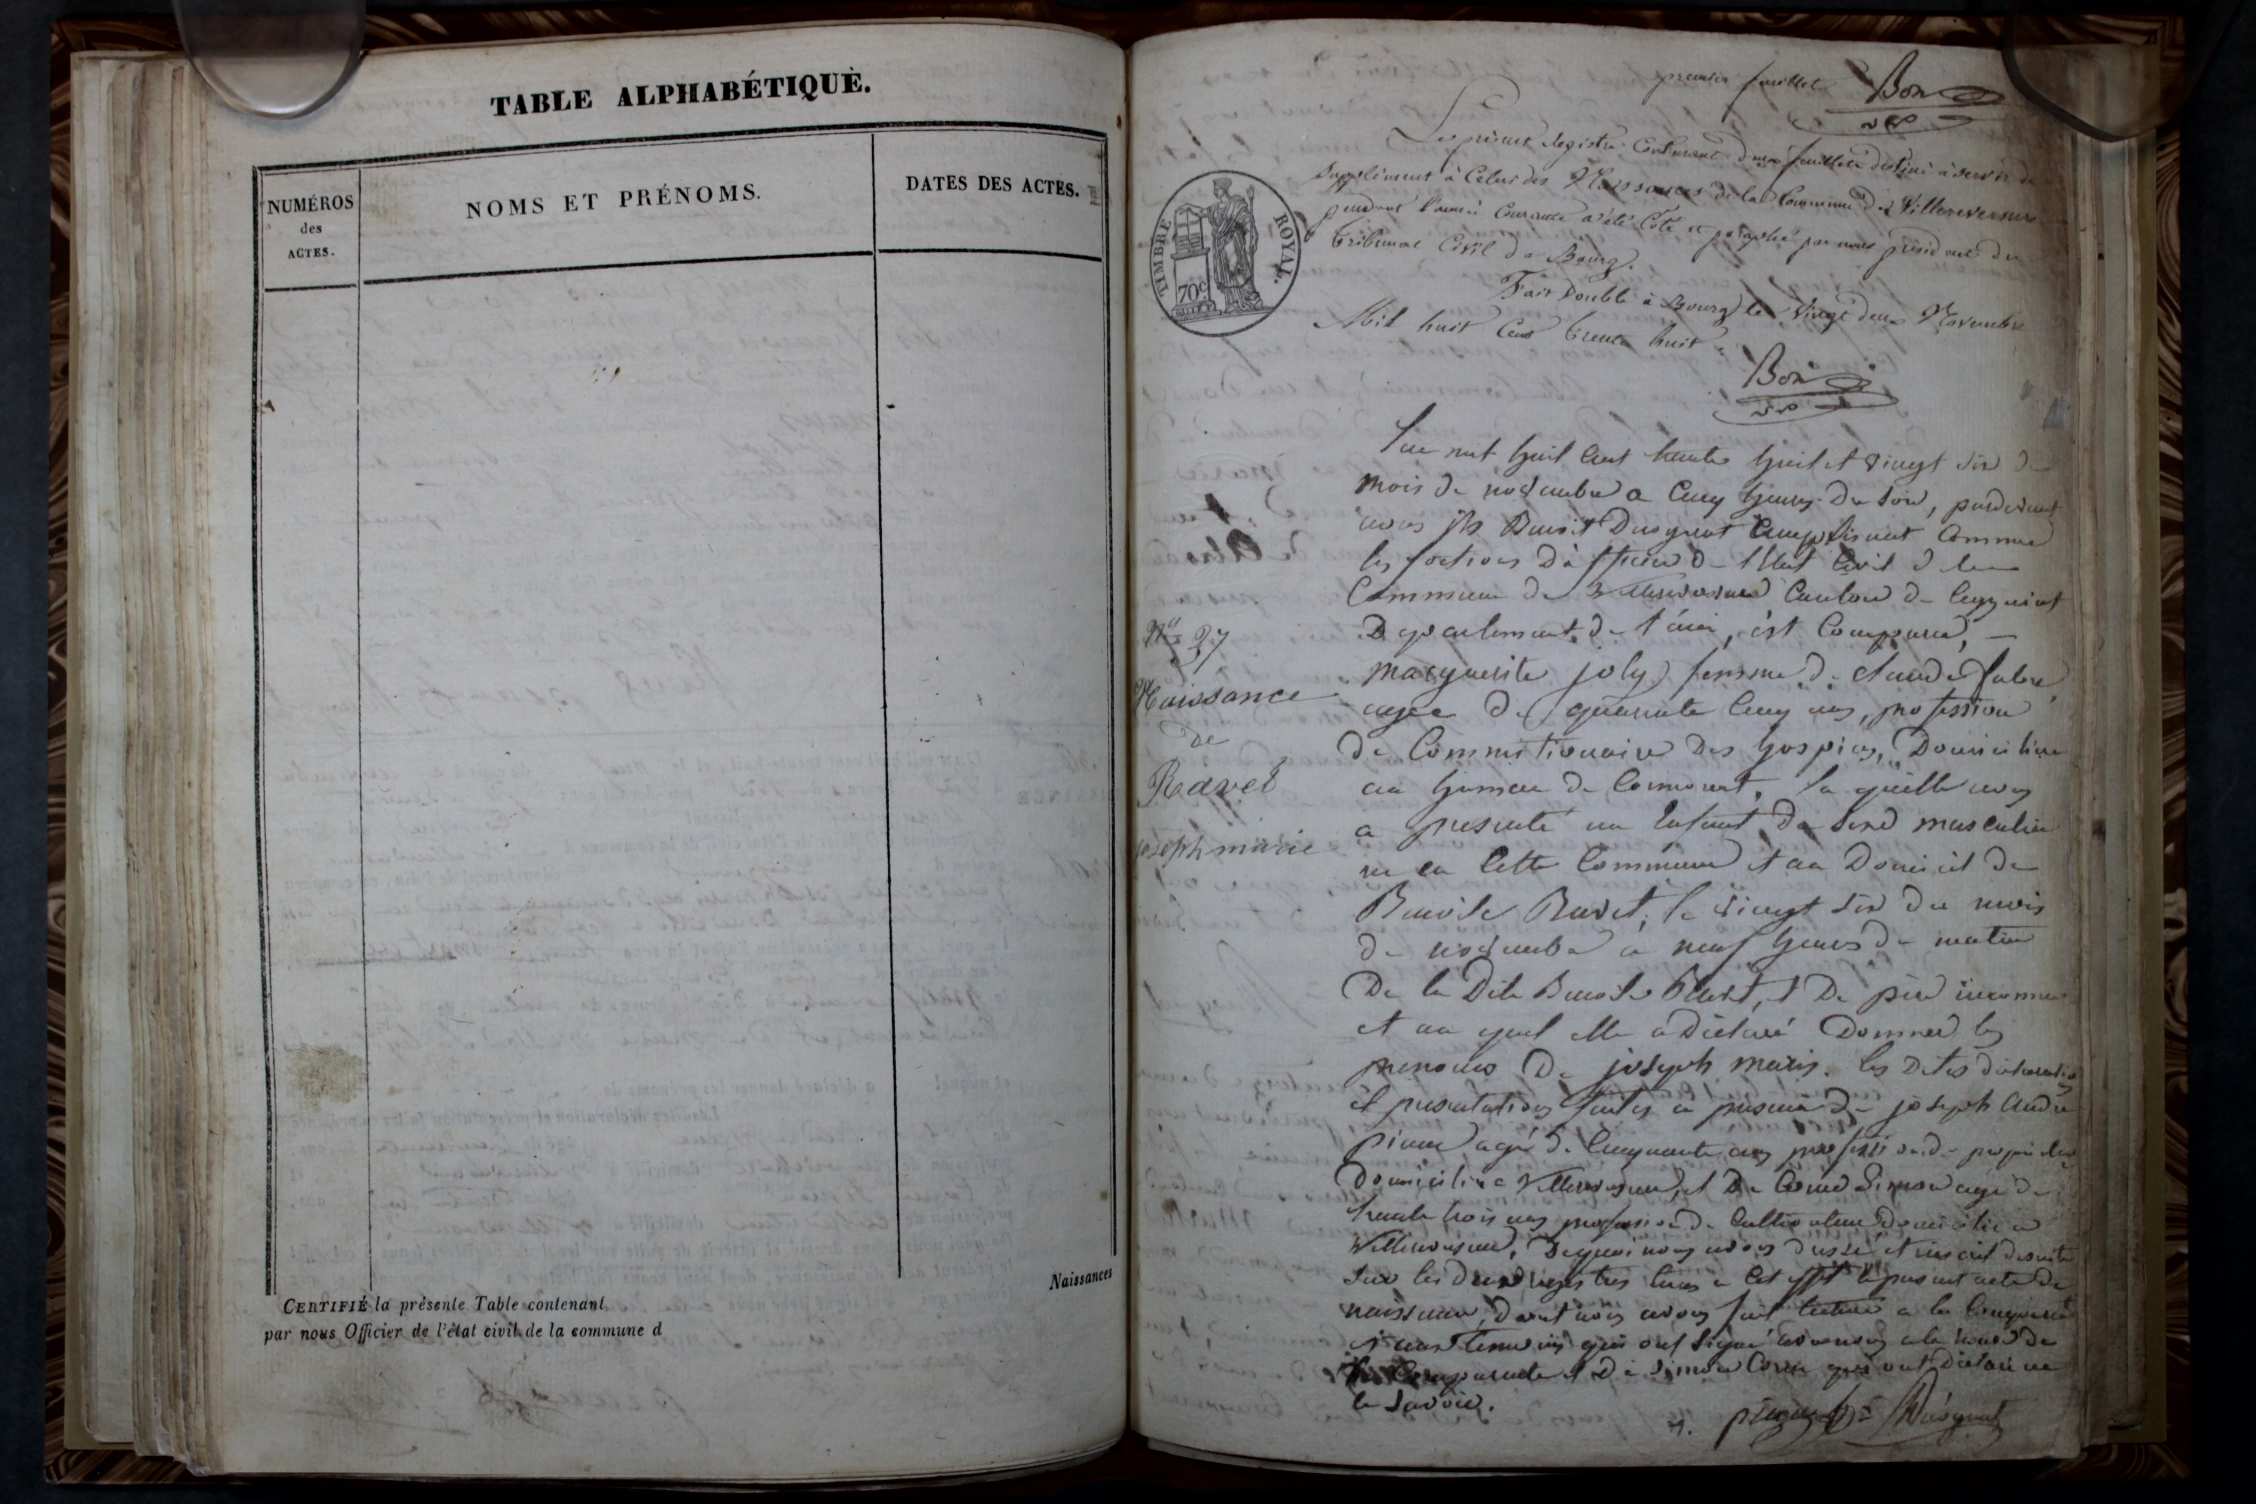 TABLE ALPHABÉTIQUE.
NUMÉROS
des
ACTES.
NOMS ET PRÉNOMS.
DATES DES ACTES.
Naissances
CERTIFIÉ la présente Table contenant
par nous Officier de l'état civil de la commune d
premier feuillet Bon
Le présent Registre Contenant deux feuillets destiné à servir de
Supplément à Celui des Naissances de la Commune de Villereversure
pendant l'année Courante a été Coté et paraphé par nous président du
tribunal Civil de Bourg.
Fait Double à Bourg le Vingt deux Novembre
Mil huit Cent trente huit
Bon
TIMBRE ROYAL.
70c
l'an mil huit Cent trente huit et vingt six du
mois de novembre a Cinq heures du soir, pardevant
nous Benoit Dusignat Remplissant Comme
les foctions d'officier de l'Etat Civil de la
Commune de Villereversure Canton de Ceyzeriat
Departement de l'ain, est Comparue,
marguerite joly femme de claude fabre
agee de quarante Cinq ans, profession
de Commistionaire des hospices, Domiciliee
au hameau de Cormoret, la quelle nous
a presenté un Enfant de sexe masculin
ne en Cette Commune et au Domicil de
Benoite Ravet, le vingt six du mois
de novembre à neuf heures de matin
De la Dite Benoite Ravet, et De père inconnu
et au quel elle a Déclaré Donner les
prenoms De joseph marie. les Dites déclaration
et presentations faites en presence de joseph andré
agé de Cinquante ans profession de propriétaire
Domicilié a Villereversure, et De Côme Simon agé de
trente trois ans profession de Cultivateur domicilié a
Villereversure, De quoi nous avons dressé et inscrit desuite
sur les deux registres tenus a Cet effet le present acte de
naissance, dont nous avons fait lecture a la Comparante
et aux temoins qui ont signé avec nous
la Comparante et De Simon Côme qui ont Déclaré ne
le savoir.
No 27
Naissance
de
Ravet
joseph marie